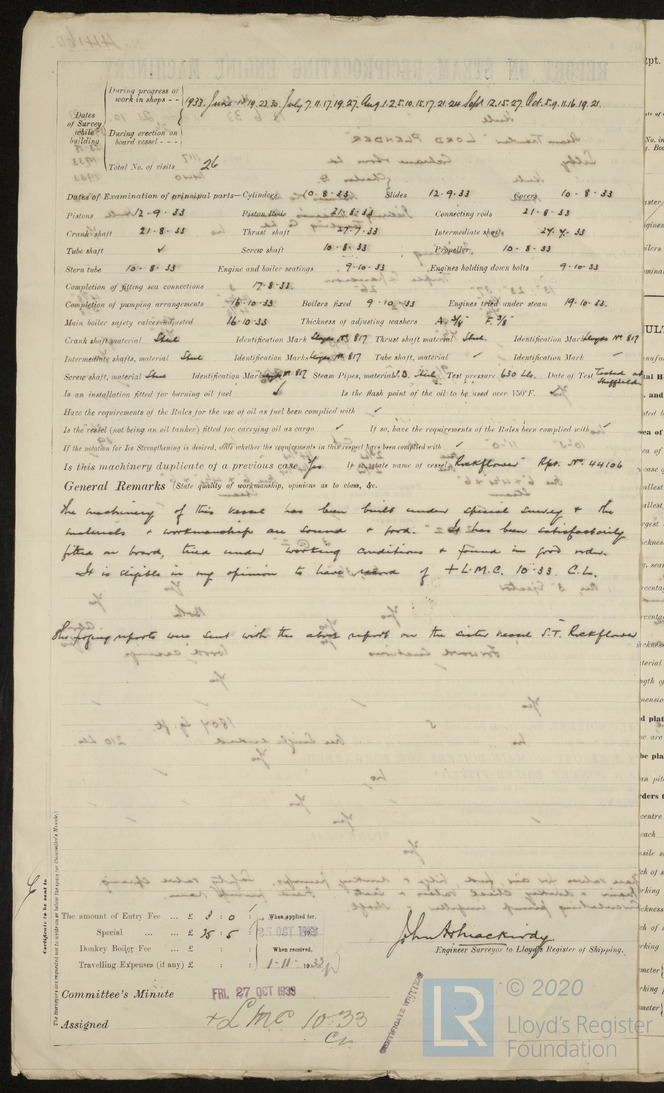 During progress of work in shops - - 1933. June 19, 23, 30. July 7. 11. 17. 19. 27. Aug. 1. 2. 5. 10. 15. 17. 21. 24. Sept 12. 15. 27. Oct. 5. 9. 11. 16. 19. 21.
Dates of Survey while building
During erection on board vessel - - -
Total No. of visits 26
Dates of Examination of principal parts—Cylinders 10 . 8 . 33 Slides 12 . 9 . 33 Covers 10 . 8 . 33
Pistons 12 . 9 . 33 Piston Rods 21 . 8 . 33 Connecting rods 21 . 8 . 33
Crank shaft 21 . 8 . 33 Thrust shaft 27 . 7 . 33 Intermediate shafts 27 . 7 . 33
Tube shaft ✓ Screw shaft 10 . 8 . 33 Propeller 10 . 8 . 33
Stern tube 10 . 8 . 33 Engine and boiler seatings 9 . 10 . 33 Engines holding down bolts 9 . 10 . 33
Completion of fitting sea connections 17 . 8 . 33
Completion of pumping arrangements 16 . 10 . 33 Boilers fixed 9 . 10 . 33 Engines tried under steam 19 . 10 . 33.
Main boiler safety valves adjusted 16 . 10 . 33 Thickness of adjusting washers A. 3/8 F. 3/8
Crank shaft material Steel Identification Mark Lloyds No 817 Thrust shaft material Steel. Identification Mark Lloyds No 817
Intermediate shafts, material Steel Identification Marks Lloyds No. 817 Tube shaft, material ✓ Identification Mark ✓
Screw shaft, material Steel Identification Mark Lloyds No 817 Steam Pipes, material S.D. Steel Test pressure 630 lbs. Date of Test Tested at Sheffield
Is an installation fitted for burning oil fuel ✓ Is the flash point of the oil to be used over 150°F. ✓
Have the requirements of the Rules for the use of oil as fuel been complied with ✓
Is the vessel (not being an oil tanker) fitted for carrying oil as cargo ✓ If so, have the requirements of the Rules been complied with ✓
If the notation for Ice Strengthening is desired, state whether the requirements in this respect have been complied with ✓
Is this machinery duplicate of a previous case Yes If so, state name of vessel "Rockflower" Rpt. No. 44106
General Remarks (State quality of workmanship, opinions as to class, &c.
The machinery of this vessel has been built under special Survey & the
materials & workmanship are sound & good. It has been satisfactorily
fitted on board, tried under working conditions & found in good order.
It is eligible in my opinion to have record of + L.M.C. 10.33. C.L.
The forging reports were sent with the above report on the sister vessel S.T. Rockflower
The amount of Entry Fee ... £ 3 : 0 : When applied for,
Special ... ... £ 25 : 5 : 25 OCT 1933
Donkey Boiler Fee ... £ : : When received,
Travelling Expenses (if any) £ : : 1 . 11 . 1933
Engineer Surveyor to Lloyd's Register of Shipping.
Committee's Minute FRI. 27 OCT 1933
Assigned + LMC 10.33
CL
CERTIFICATE WRITTEN
Certificate to be sent to
The Surveyors are requested not to write on or below the space for Committee's Minute.
© 2020
LR Lloyd's Register
Foundation